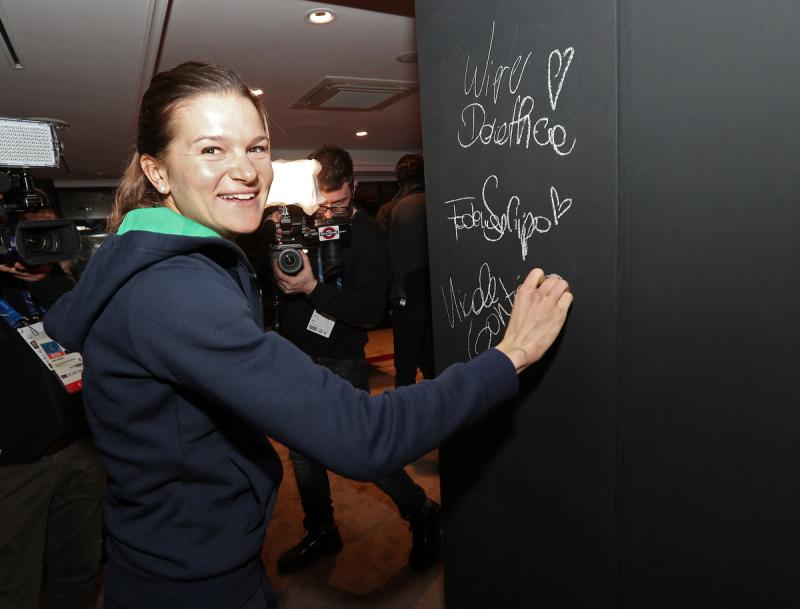 Wierer
Dorothea
Federica Sanfilippo
Nicole